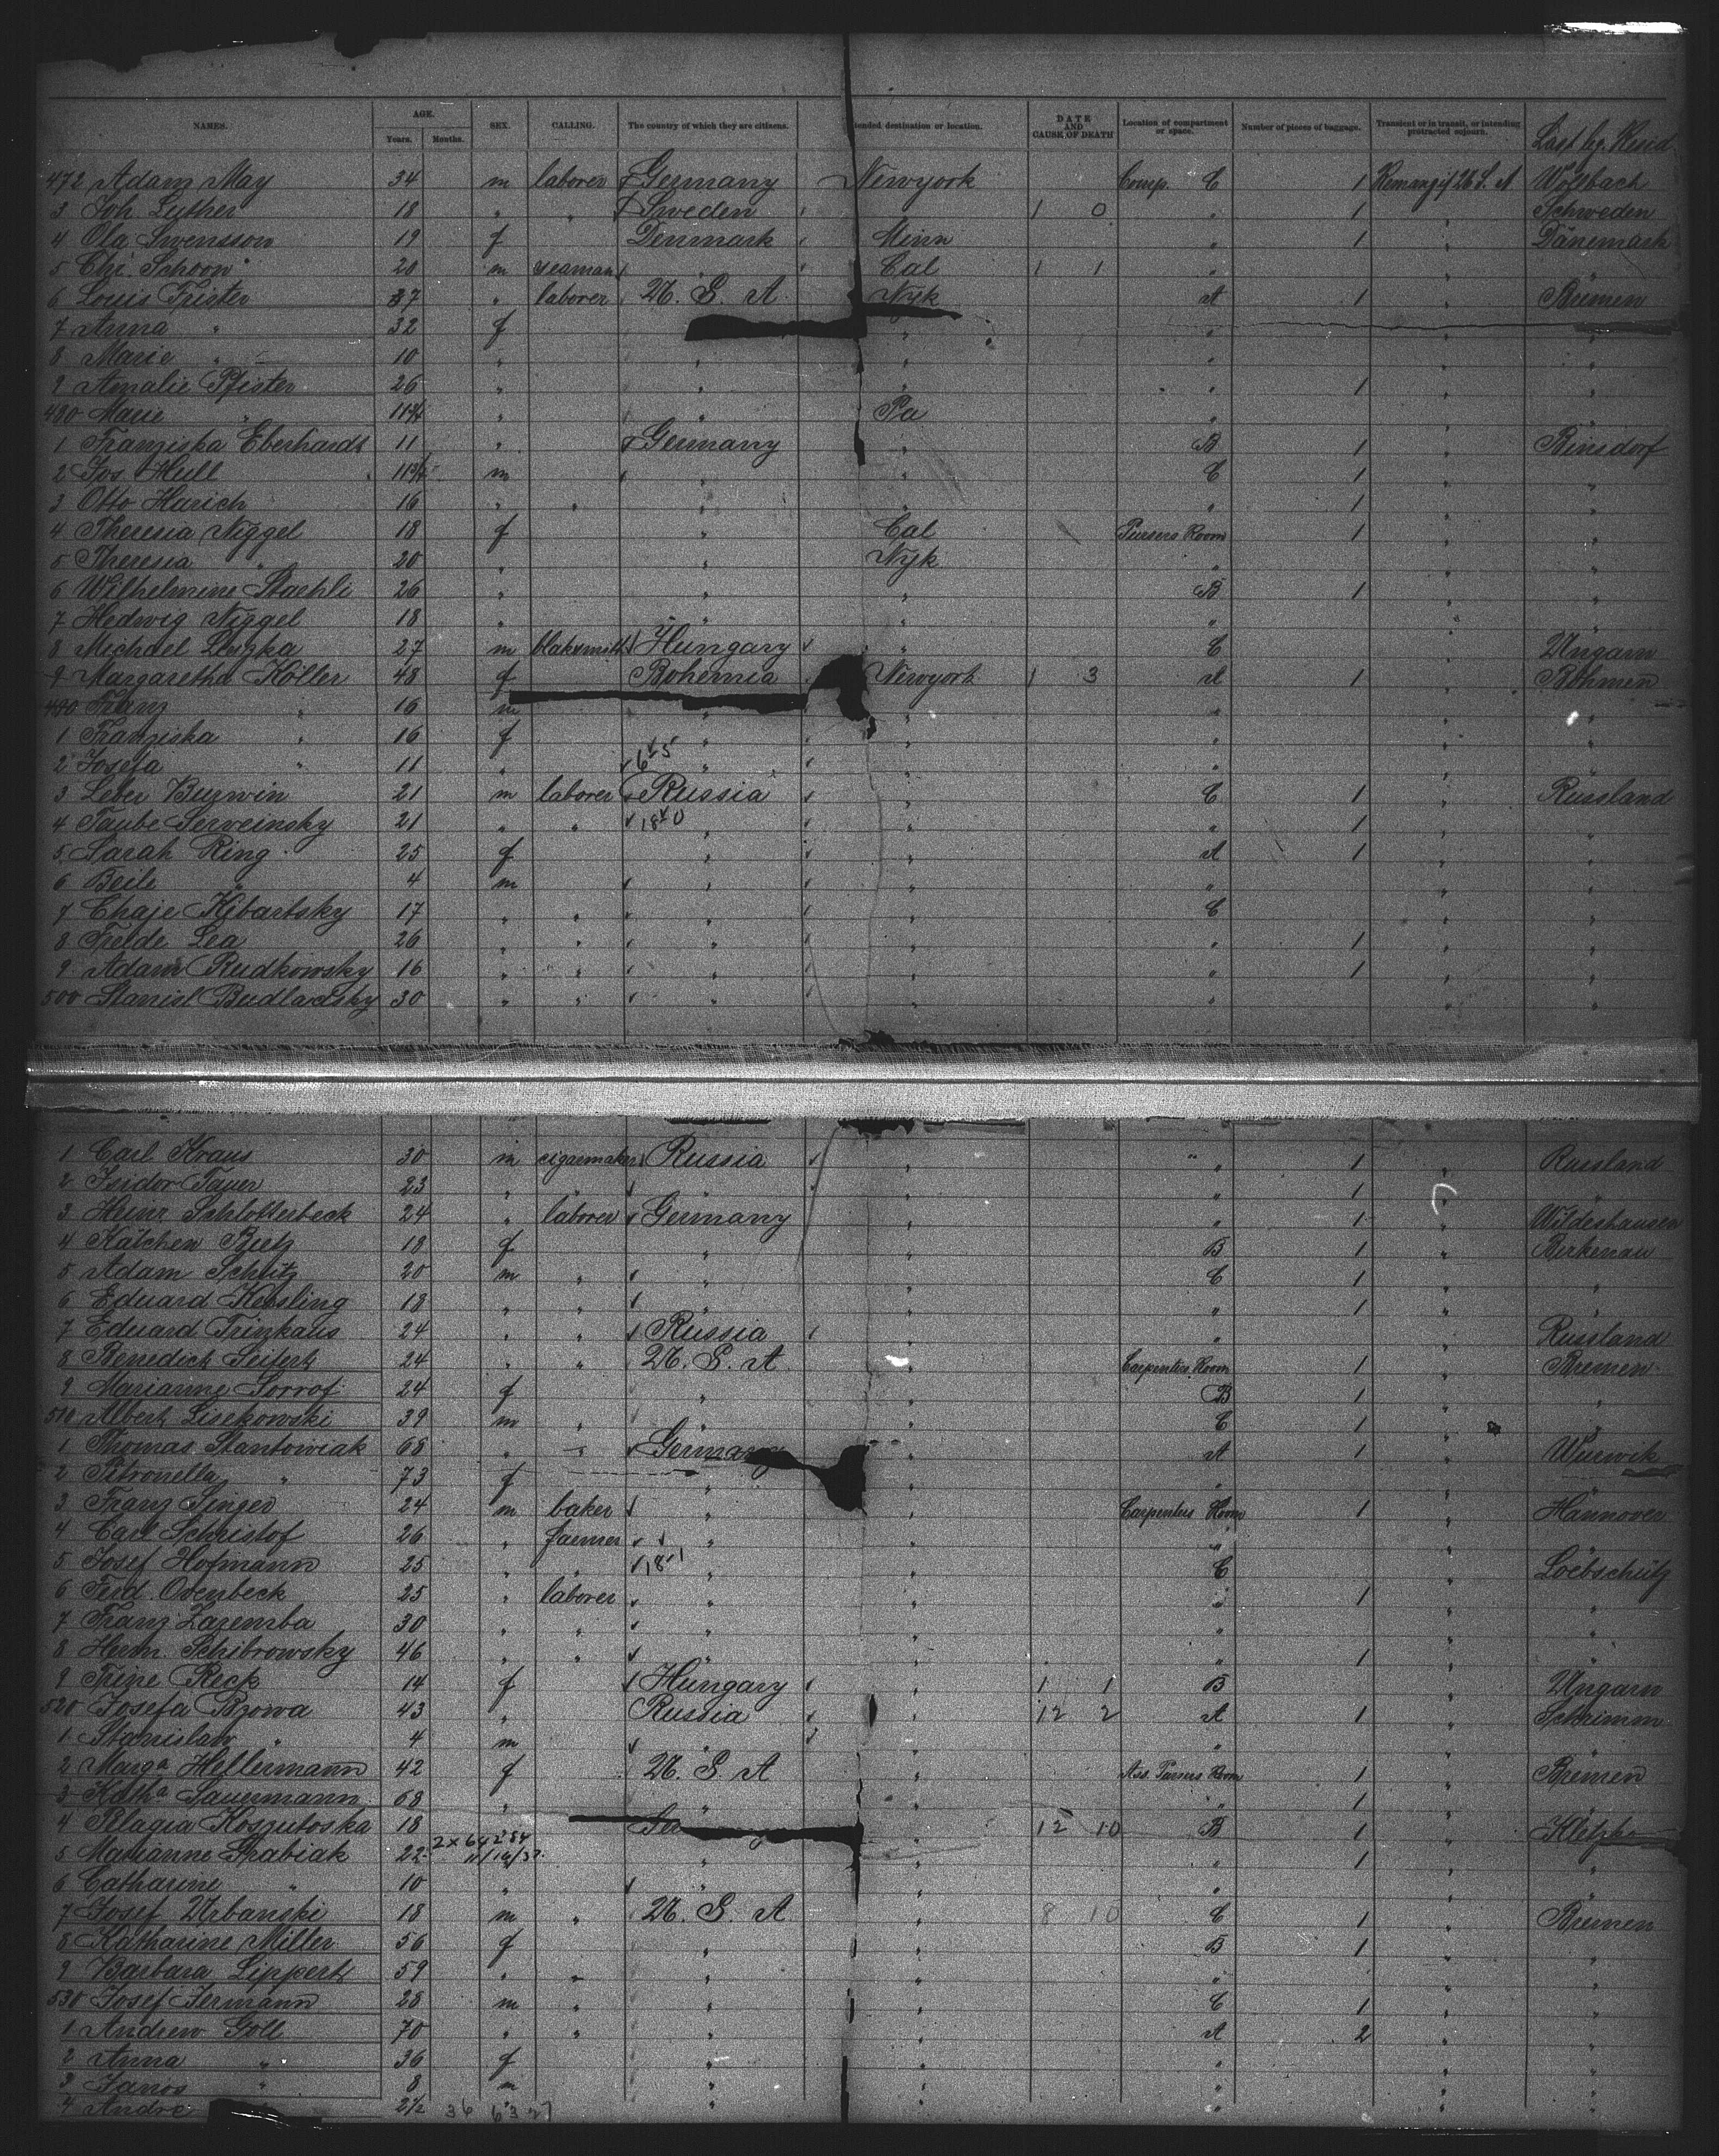 NAMES. AGE. SEX. CALLING. The country of which they are citizens. ended destination or location. DATE AND CAUSE OF DEATH Location of compartment or space. Number of pieces of baggage. Transient or in transit, or intending protracted sojourn. Last
Years. Months.
472 Adam May 34 m laborer Germany Newyork Comp. C 1
3 Joh. Luther 18 " " Sweden 1 0 " 1 " Schweden
4 Ola Swensson 19 f Denmark Minn " 1 " Dänemark
5 Chr. Schoow 20 m seaman " Cal 1 1 " " "
6 Louis Frister 37 " laborer U. S. A Nyk A 1 " Bremen
7 Anna " 32 f " "
8 Marie " 10 " " " "
9 Amalie Pfister 26 " " " " 1 " "
490 Marie " 11 " " Pa " "
1 Franziska Eberhardt 11 " Germany " B 1 "
2 Jos Heil 11 m " " C 1 " "
3 Otto Harich 16 " " " " " 1 " "
4 Theresia Niggel 18 f " Cal Pursers Room 1 " "
5 Theresia " 20 " " Nyk " " "
6 Wilhelmine Staehli 26 " " " B 1 " "
7 Hedwig Niggel 18 " " " " " "
8 Michael 27 m blaksmith Hungary " C " Ungarn
9 Margaretha Köller 48 f Bohemia Newyork 1 3 A 1 " Böhmen
490 Franz " 16 m " " " " "
1 Franziska " 16 f " " " " "
2 Josefa " 11 " " " " " "
3 Leser Burwin 21 m laborer Russia " C 1 " Russland
4 Taube Serveinsky 21 " " " " " 1 " "
5 Sarah Ring 25 f " " A 1 " "
6 Beile " 4 m " " " " "
7 Chaje Kibartsky 17 " " " " C " "
8 Frelde Lea 26 " " " " " 1 " "
9 Adam Rudkowsky 16 " " " " " 1 " "
500 Stanisl Budlardsky 30 " " " " " " "
1 Carl Kraus 30 m cigarmaker Russia " " 1 " Russland
2 Isidor Tauer 23 " " " " " 1 " "
3 Heinr Schlotterbeck 24 " laborer Germany " " 1 " Wildeshausen
4 Kätchen Rietz 18 f " " B 1 " Birkenau
5 Adam Schütz 20 m " " " C 1 " "
6 Eduard Kessling 18 " " " " " 1 " "
7 Eduard Trinkaus 24 " " Russia " " " Russland
8 Benedich Seifert 24 " " U. S. A " Carpenters Room 1 " Bremen
9 Marianne Sorrof 24 f " " B 1 " "
510 Albert Lisekowski 39 m " " " C 1 " "
1 Thomas Stantowiak 68 " " Germany " A 1 "
2 Petronella " 73 f " " " " "
3 Franz Singer 24 m baker " " Carpenters Room 1 " Hannover
4 Carl Schristof 26 " farmer " " " " "
5 Josef Hofmann 25 " " " " C " Loebschütz
6 Ferd. Ovenbeck 25 " laborer " " " 1 " "
7 Franz Zaremba 30 " " " " " " "
8 Herm. Schibrowsky 46 " " " " " 1 " "
9 Trine Reck 14 f Hungary " 1 1 B " Ungarn
520 Josefa Bzowa 43 " Russia " 12 2 A 1 " Schrimm
1 Stanislaw " 4 m " " " " "
2 Marga Hellermann 42 f U. S. A " Ass. Pursers Room 1 " Bremen
3 Katha Sauermann 68 " " " " 1 " "
4 Pelagia Koszutoska 18 " " 12 10 B 1 "
5 Marianne Grabiak 22 " " " 1 " "
6 Catharine " 10 " " " " " "
7 Josef Urbanski 18 m " U. S. A " 8 10 C 1 " Bremen
8 Katharine Miller 56 f " " B 1 " "
9 Barbara Lippert 59 " " " " " " "
530 Josef Jermann 28 m " " " C 1 " "
1 Andrew Goll 70 " " " " A 2 " "
2 Anna " 36 f " " " " "
3 Janos " 8 m " " " " "
4 Andre 2½ " " " " "